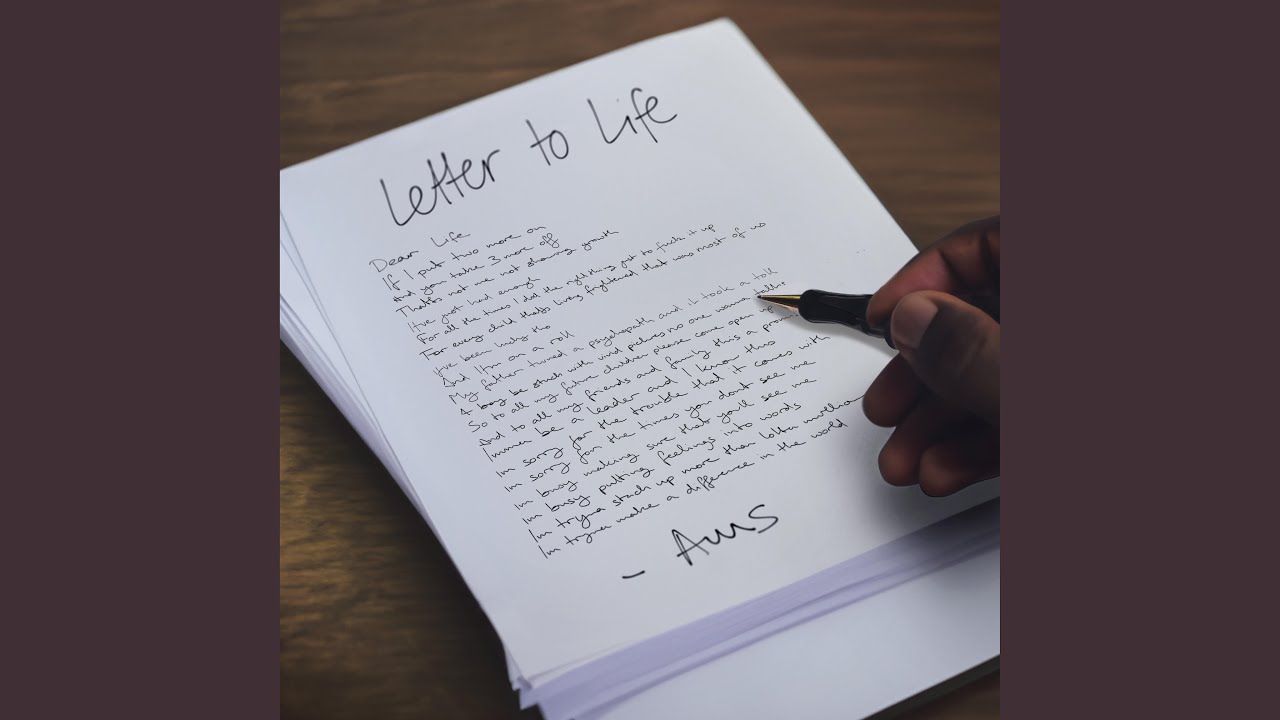 Letter to Life
Dear Life
If I put two more on
And you take 3 more off
That's not me not showing growth
I've just had enough
For all the times I did the right thing just to fuck it up
For every child thats living frightened that was most of us
I've been lucky tho
And I'm on a roll
My father turned a psychopath and it took a toll
A boy be stuck with vivid pictures no one wanna talk
So to all my future children please come open up
And to all my friends and family this a promise
Imma be a leader and I know this
Im sorry for the trouble that it comes with
Im sorry for the times you dont see me
Im busy making sure that you'll see me
Im busy putting feelings into words
Im tryna stack up more than lotta
Im tryna make a difference in the world
- Aws